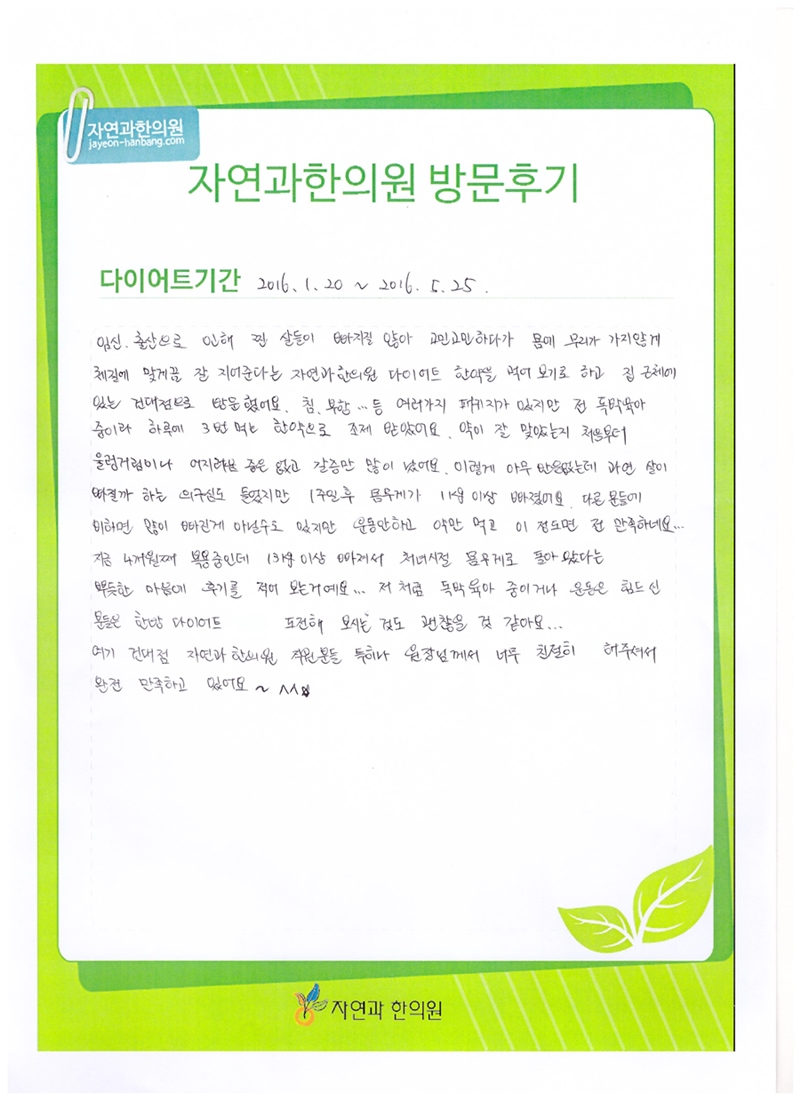 자연과한의원
jayeon-hanbang.com
자연과한의원 방문후기
다이어트기간 2016. 1. 20 ~ 2016. 5. 25.
임신. 출산으로 인해 찐 살들이 빠지질 않아 고민고민하다가 몸에 무리가 가지않게
체질에 맞게끔 잘 지어준다는 자연과한의원 다이어트 한약을 먹어 보기로 하고 집 근처에
있는 건대점으로 방문했어요. 침, 부항 ... 등 여러가지 패키지가 있지만 전 독박육아
중이라 하루에 3번 먹는 한약으로 조제 받았어요. 약이 잘 맞았는지 처음부터
울렁거림이나 어지러움 증은 없고 갈증만 많이 났어요. 이렇게 아무 반응없는데 과연 살이
빠질까 하는 의구심도 들었지만 1주일 후 몸무게가 1kg 이상 빠졌어요. 다른 분들에
비하면 많이 빠진게 아닐수도 있지만 운동안하고 약만 먹고 이 정도면 전 만족하네요...
지금 4개월째 복용중인데 13kg 이상 빠져서 처녀시절 몸무게로 돌아 왔다는
뿌듯한 마음에 후기를 적어 보는거예요... 저 처럼 독박육아 중이거나 운동은 힘드신
분들은 한방 다이어트 도전해 보시는 것도 괜찮을 것 같아요...
여기 건대점 자연과한의원 직원분들 특히나 원장님께서 너무 친절히 해주셔서
완전 만족하고 있어요~ ^^
자연과 한의원